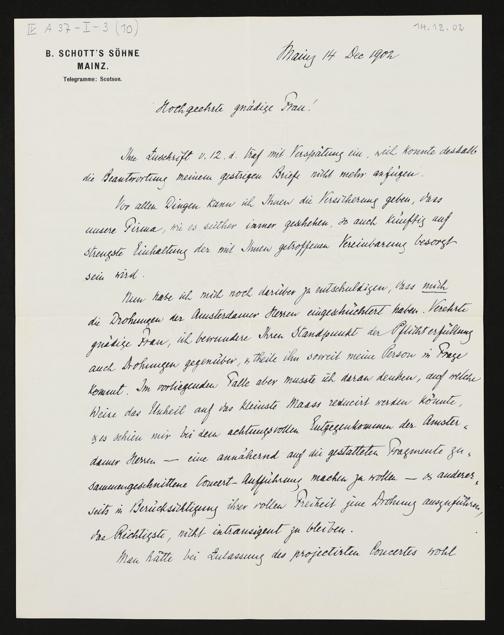 IV A 37-I-3 (10)
14.12.02
B. SCHOTT'S SÖHNE
MAINZ.
Telegramme: Scotson.
Mainz 14 Dec 1902
Hochgeehrte gnädige Frau!
Ihre Zuschrift v. 12. d. traf mit Verspätung ein, weil konnte deshalb
die Beantwortung meinem gestrigen Briefe nicht mehr anfügen.
Vor allen Dingen kann ich Ihnen die Versicherung geben, dass
unsere Firma, wie es seither immer geschehen, so auch künftig auf
strengste Einhaltung der mit Ihnen getroffenen Vereinbarung besorgt
sein wird.
Nun habe ich mich noch darüber zu entschuldigen, dass mich
die Drohungen der Amsterdamer Herren eingeschüchtert haben. Verehrte
gnädige Frau, ich bewundere Ihren Standpunkt der Pflichterfüllung
auch Drohungen gegenüber, & theile ihn soweit meine Person in Frage
kommt. Im vorliegenden Falle aber musste ich daran denken, auf welche
Weise das Unheil auf das kleinste Maass reducirt werden könnte,
& es schien mir bei dem achtungsvollen Entgegenkommen der Amster-
damer Herren — eine annähernd auf die gestatteten Fragmente zu-
sammengeschnittene Concert-Aufführung machen zu wollen — & anderer-
seits in Berücksichtigung ihrer vollen Freiheit jene Drohung auszuführen,
das Richtigste, nicht intransigent zu bleiben.
Man hätte bei Zulassung des projectirten Concertes wohl